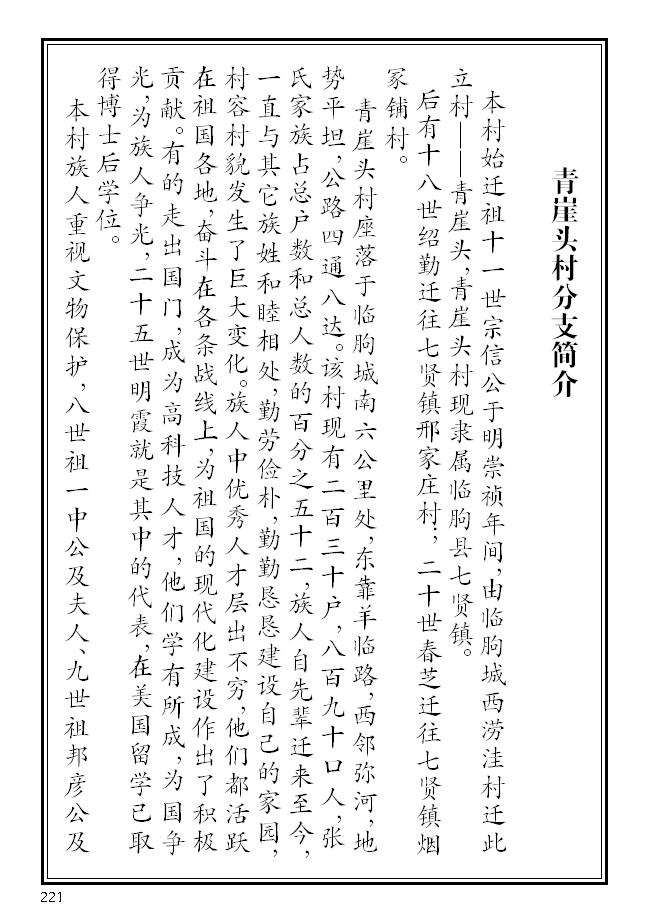 青崖头村分支简介
本村始迁祖十一世宗信公于明崇祯年间，由临朐城西涝洼村迁此
立村——青崖头，青崖头村现隶属临朐县七贤镇。
后有十八世绍勤迁往七贤镇邢家庄村；二十世春芝迁往七贤镇烟
冢铺村。
青崖头村座落于临朐城南六公里处，东靠羊临路，西邻弥河，地
势平坦，公路四通八达。该村现有二百三十户，八百九十口人，张
氏家族占总户数和总人数的百分之五十二，族人自先辈迁来至今，
一直与其它族姓和睦相处，勤劳俭朴，勤勤恳恳建设自己的家园，
村容村貌发生了巨大变化。族人中优秀人才层出不穷，他们都活跃
在祖国各地，奋斗在各条战线上，为祖国的现代化建设作出了积极
贡献。有的走出国门，成为高科技人才，他们学有所成，为国争
光，为族人争光，二十五世明霞就是其中的代表，在美国留学已取
得博士后学位。
本村族人重视文物保护，八世祖一中公及夫人、九世祖邦彦公及
221